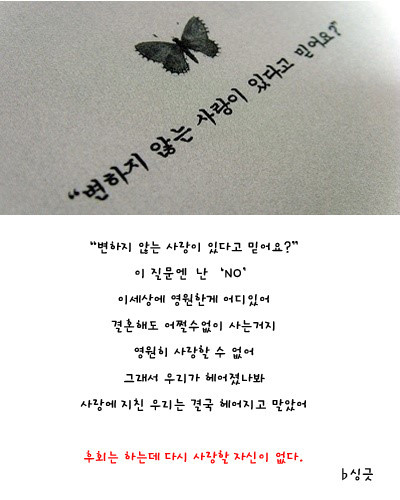 “변하지 않는 사랑이 있다고 믿어요?”
“변하지 않는 사랑이 있다고 믿어요?”
이 질문엔 난 ‘NO’
이세상에 영원한게 어디있어
결혼해도 어쩔수없이 사는거지
영원히 사랑할 수 없어
그래서 우리가 헤어졌나봐
사랑에 지친 우리는 결국 헤어지고 말았어
후회는 하는데 다시 사랑할 자신이 없다.
b싱긋